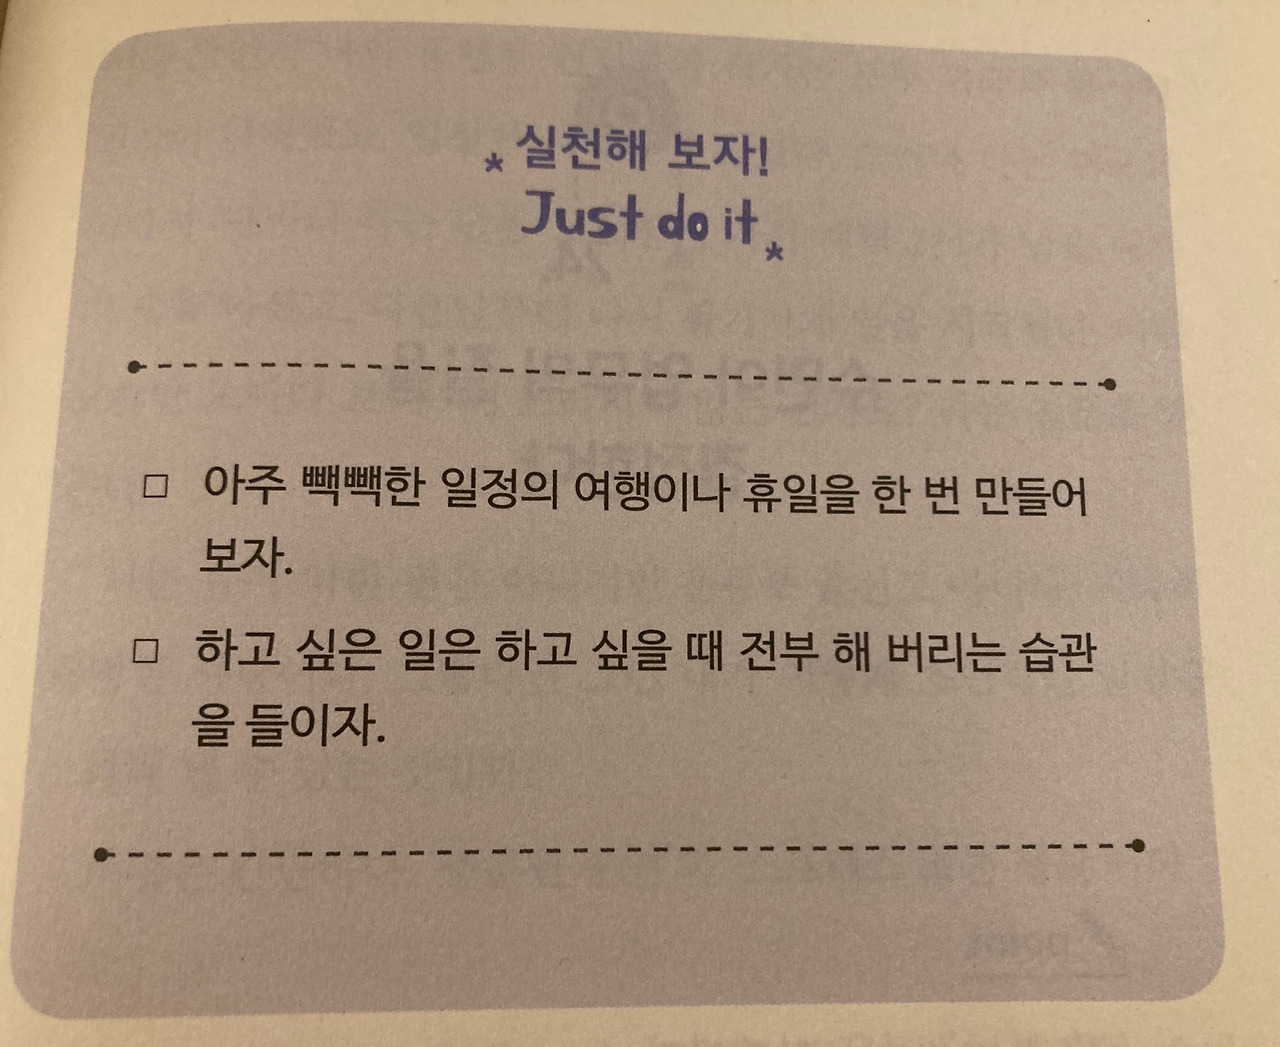 * 실천해 보자!
Just do it *
□ 아주 빽빽한 일정의 여행이나 휴일을 한 번 만들어
보자.
□ 하고 싶은 일은 하고 싶을 때 전부 해 버리는 습관
을 들이자.